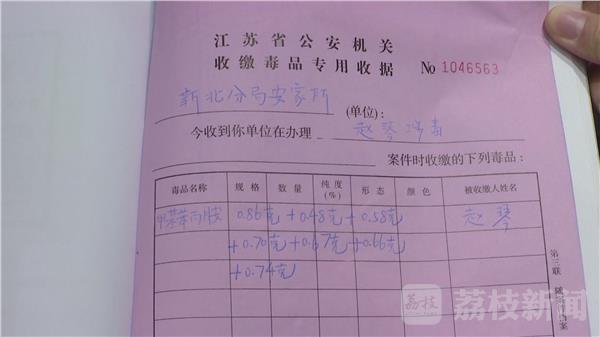 江苏省公安机关
收缴毒品专用收据 No 1046563
新北分局安家所 (单位):
今收到你单位在办理 赵琴吸毒
案件时收缴的下列毒品:
毒品名称 规格 数量 纯度(%) 形态 颜色 被收缴人姓名
甲基苯丙胺 0.86克+0.48克+0.58克 赵琴
+0.70克+0.67克+0.66克
+0.74克
第三联
荔枝 荔枝新闻